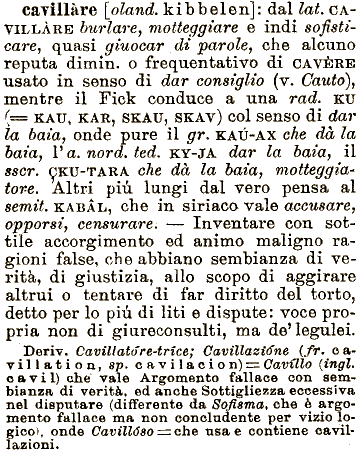 cavillàre [oland. kibbelen]: dal lat. CA-
VILLÀRE burlare, motteggiare e indi sofisti-
care, quasi giuocar di parole, che alcuno
reputa dimin. o frequentativo di CAVÈRE
usato in senso di dar consiglio (v. Cauto),
mentre il Fick conduce a una rad. KU
(= KAU, KAR, SKAU, SKAV) col senso di dar
la baia, onde pure il gr. KAÚ-AX che dà la
baia, l'a. nord. ted. KY-JA dar la baia, il
sscr. ÇKU-TARA che dà la baia, motteggia-
tore. Altri più lungi dal vero pensa al
semit. KABÂL, che in siriaco vale accusare,
opporsi, censurare. — Inventare con sot-
tile accorgimento ed animo maligno ra-
gioni false, che abbiano sembianza di ve-
rità, di giustizia, allo scopo di aggirare
altrui o tentare di far diritto del torto,
detto per lo più di liti e dispute: voce pro-
pria non di giureconsulti, ma de' legulei.
Deriv. Cavillatóre-tríce; Cavillazióne (fr. ca-
villation, sp. cavilacion) = Cavíllo (ingl.
cavil) che vale Argomento fallace con sem-
bianza di verità, ed anche Sottigliezza eccessiva
nel disputare (differente da Sofisma, che è argo-
mento fallace ma non concludente per vizio lo-
gico), onde Cavillóso = che usa e contiene cavil-
lazioni.